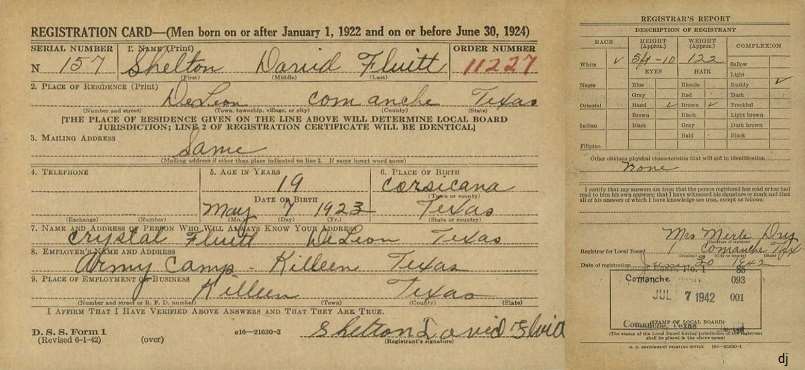 REGISTRATION CARD—(Men born on or after January 1, 1922 and on or before June 30, 1924)
SERIAL NUMBER 1. NAME (Print) ORDER NUMBER
N 157 Shelton David Fluitt 11227
(First) (Middle) (Last)
2. PLACE OF RESIDENCE (Print)
DeLeon Comanche Texas
(Number and street) (Town, township, village, or city) (County) (State)
[THE PLACE OF RESIDENCE GIVEN ON THE LINE ABOVE WILL DETERMINE LOCAL BOARD
JURISDICTION; LINE 2 OF REGISTRATION CERTIFICATE WILL BE IDENTICAL]
3. MAILING ADDRESS
Same
(Mailing address if other than place indicated on line 2. If same insert word same)
4. TELEPHONE 5. AGE IN YEARS 6. PLACE OF BIRTH
19 Corsicana
DATE OF BIRTH (Town or county)
May 7 1923 Texas
(Exchange) (Number) (Mo.) (Day) (Yr.) (State or country)
7. NAME AND ADDRESS OF PERSON WHO WILL ALWAYS KNOW YOUR ADDRESS
Crystal Fluitt DeLeon Texas
8. EMPLOYER'S NAME AND ADDRESS
Army Camp - Killeen Texas
9. PLACE OF EMPLOYMENT OR BUSINESS
Killeen Texas
(Number and street or R. F. D. number) (Town) (County) (State)
I AFFIRM THAT I HAVE VERIFIED ABOVE ANSWERS AND THAT THEY ARE TRUE.
D. S. S. Form 1
(Revised 6-1-42) (over) c16—21630-2 Shelton David Fluitt
(Registrant's signature)
REGISTRAR'S REPORT
DESCRIPTION OF REGISTRANT
RACE HEIGHT (Approx.) WEIGHT (Approx.) COMPLEXION
White ✓ 5ft-10 122 Sallow
EYES HAIR Light
Negro Blue Blonde Ruddy ✓
Gray Red Dark
Oriental Hazel ✓ Brown ✓ Freckled
Brown Black Light brown
Indian Black Gray Dark brown
Bald Black
Filipino
Other obvious physical characteristics that will aid in identification
None
I certify that my answers are true; that the person registered has read or has had
read to him his own answers; that I have witnessed his signature or mark and that
all of his answers of which I have knowledge are true, except as follows:
Mrs Merle Day
Registrar for Local Board Comanche Tex
Date of registration 30 1942
Comanche 093
JUL 7 1942 001
Comanche, Texas
(STAMP OF LOCAL BOARD)
(The stamp of the Local Board having jurisdiction of the registrant
shall be placed in the above space)
U. S. GOVERNMENT PRINTING OFFICE 16—21630-1
dj